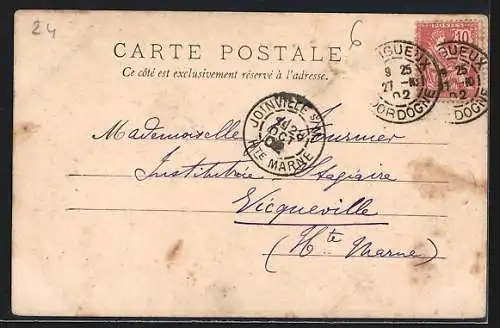 24
6
CARTE POSTALE
Ce côté est exclusivement réservé à l'adresse.
10
IGUEUX
9 25
27 -10
02
DORDOGNE
GUEUX
25
10
02
DOGNE
JOINVILLE S/M
OCT
02
HTE MARNE
Mademoiselle Fournier
Institutrice Stagiaire
Vicqueville
(Hte Marne)